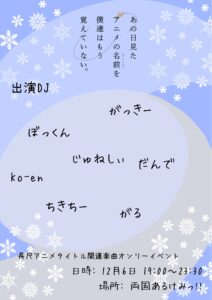 あの日見た
アニメの名前を
僕達はもう
覚えていない。
出演DJ
がっきー
ぽっくん
じゅねしぃ
だんで
ko-en
ちきちー
がる
長尺アニメタイトル関連楽曲オンリーイベント
日時: 12月6日 19:00〜23:30
場所: 両国あるけみっ!!